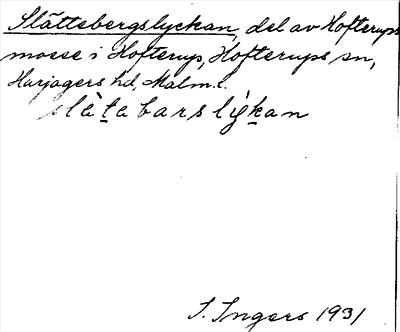 Slättebergslyckan, del av Hofterups
mosse i Hofterup, Hofterups sn,
Harjagers hd, Malm. l.
slätabarslykan
I. Ingers 1931